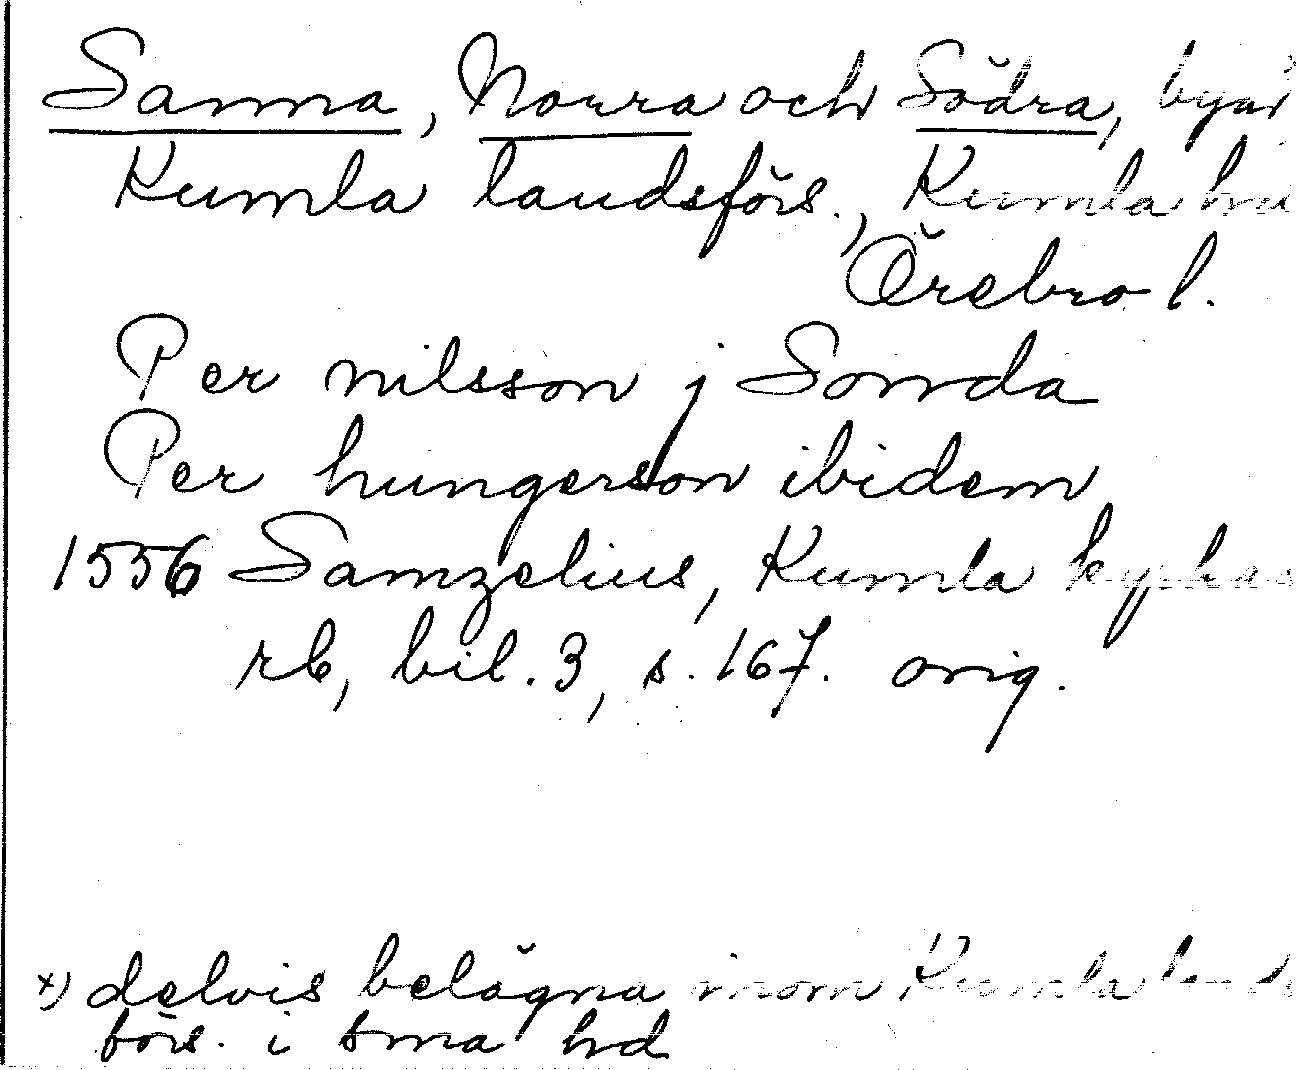 Sanna, Norra och Södra, byar
Kumla landsförs., Kumla hd
Örebro l.
Per nilsson j Sonnda
Per hungerson ibidem
1556 Samzelius, Kumla kyrkas
rb, bil. 3, s. 167. orig.
x) delvis belägna inom Kumla lands
förs. i sma hd